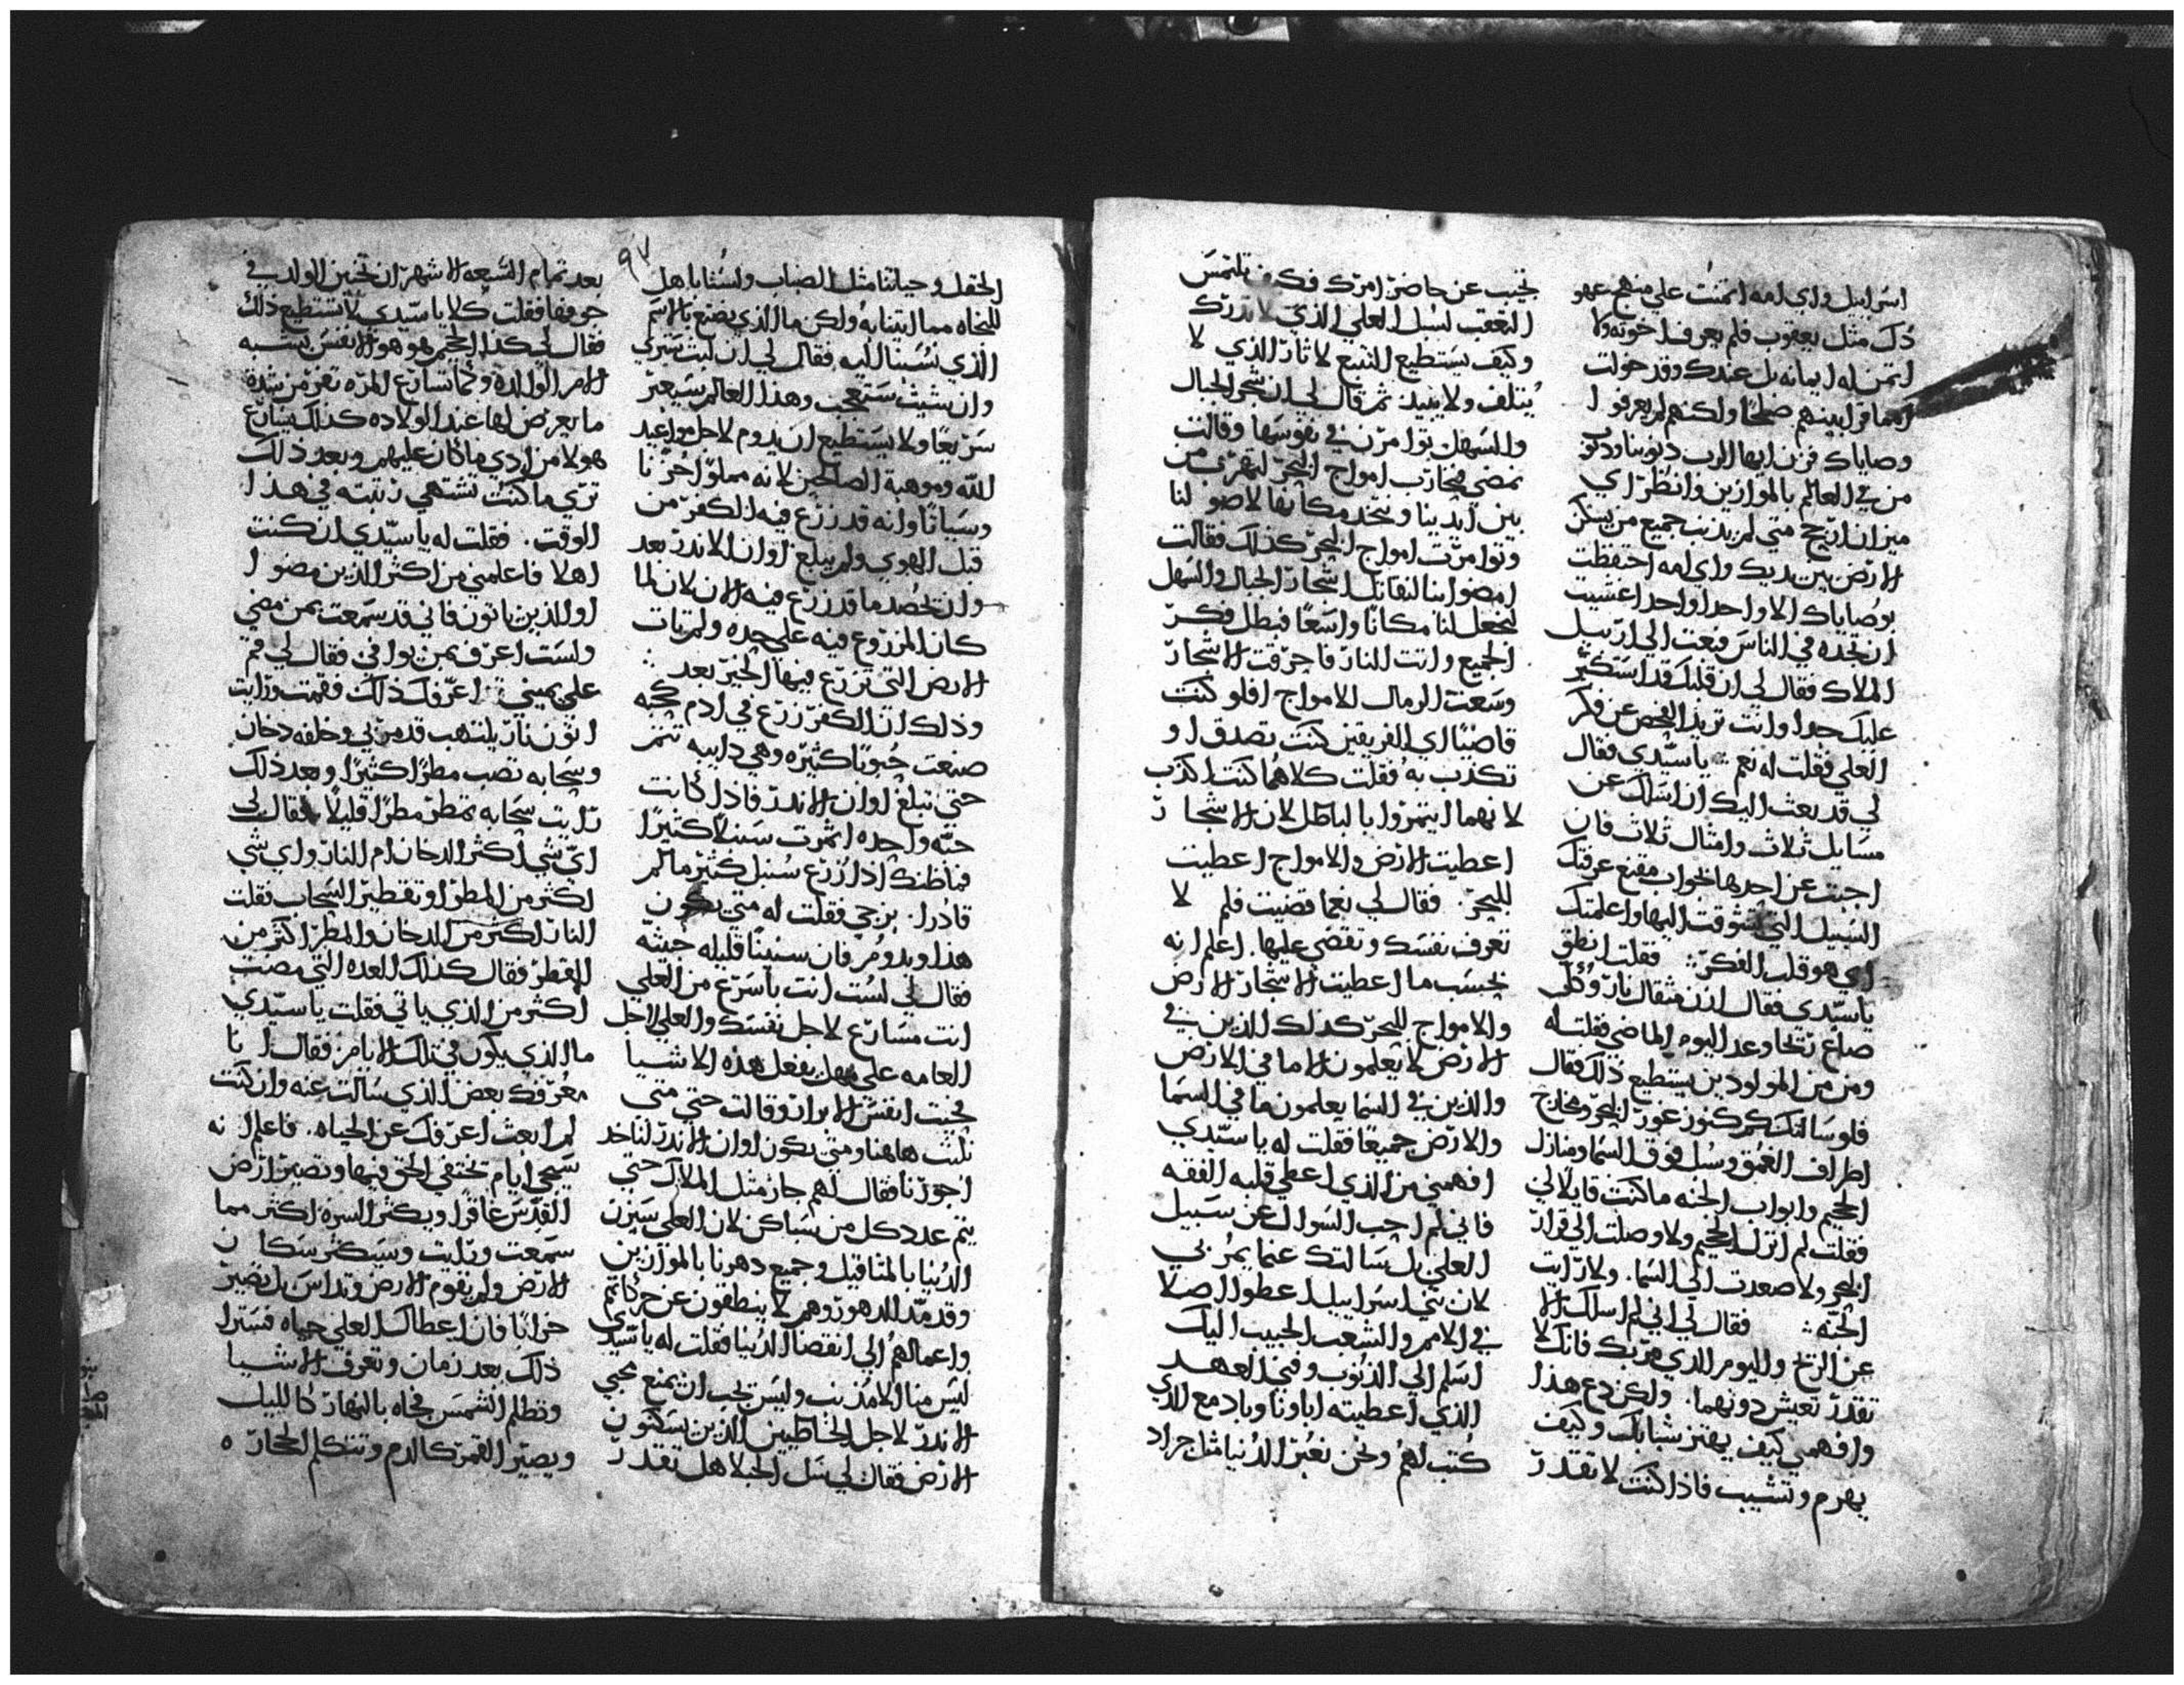 اسراييل واي امه امنت على منهج عهو
دك مثل يعقوب فلم يعرف اخوته ولا
اتمن له ايمانه بل عندك وقد حولت
الامم فرايتهم صلحا ولكنهم لم يعرفوا
وصاياك فزن ايها الرب ذنوبنا وذنوب
من في العالم بالموازين وانظر اي
ميزان ارجح متى لم يذنب جميع من يسكن
الارض بين يديك واي امه احتفظت
بوصاياك الا واحدا واحدا عشيت
ان تجده في الناس فبعث الي ارييل
الملاك فقال لي ان قلبك قد استكثر
عليك جدا وانت تريد الفحص عن فكر
العلي فقلت له نعم يا سيدي فقال
لي قد بعث اليك ان اسلك عن
مسايل ثلاث وامثال ثلاث فان
اجبت عن احدها بجواب مقنع عرفتك
السبيل التي تشوقت اليها واعلمتك
اي هو قلب الفكر فقلت انطق
يا سيدي فقال لي زن مثقال نار وكل
صاع ريحا وعد اليوم الماضي فقلت له
ومن من المولودين يستطيع ذلك فقال
فلو سالتك كم كنوز غور البحر ومخارج
اطراف العمق وسبل فوق السما ومنازل
الجحيم وابواب الجنه ما كنت قايلا لي
فقلت لم انزل الجحيم ولا وصلت الي قرار
البحر ولا صعدت الي السما ولا رايت
الجنه فقال لي اني لم اسلك الا
عن الريح واليوم الذي مر بك فانك لا
تقدر تعيش دونهما ولكن دع هذا
وافهمني كيف يهتز شبابك وكيف
يهرم وتشيب فاذا كنت لا تقدر
تجيب عن حاضر امرك فكيف تلتمس
التعقب لسبل العلي الذي لا تدرك
وكيف يستطيع التتبع لاثار الذي لا
يتلف ولا يبيد ثم قال لي ان شجر الجبال
والسهل توامرن في نفوسها وقالت
نمضي فنحارب امواج البحر لتهرب من
بين ايدينا ونتخذ مكانها لاصولنا
وتوامرت امواج البحر كذلك فقالت
امضوا بنا لنقاتل اشجار الجبال والسهل
لنجعل لنا مكانا واسعا فبطل فكر
الجميع واتت النار فاحرقت الاشجار
وسعت الرمال الامواج افلو كنت
قاضيا اي الفريقين كنت تصدق او
تكذب به فقلت كلاهما كنت اكذب
لانهما ايتمروا بالباطل لان الاشجار
اعطيت الارض والامواج اعطيت
البحر فقال لي نعما قضيت فلم لا
تعرف نفسك وتقضي عليها اعلم انه
بحسب ما اعطيت الاشجار الارض
والامواج البحر كذلك الذين في
الارض لا يعلمون الا ما في الارض
والذين في السما يعلمون ما في السما
والارض جميعا فقلت له يا سيدي
افهمني من الذي اعطي قلبه الفقه
فاني لم احب السوال عن سبيل
العلي بل سالتك عما يمر بي
لان بني اسراييل اعطوا الصلا
في الامم والشعب الحبيب اليك
اسلم الي الذنوب وفني العهد
الذي اعطيته اباونا وباد مع الذي
كتب لهم ونحن نعبر الدنيا مثل جراد
٩٧
الحقل وحياتنا مثل الضباب ولسنا باهل
للنجاه مما ابتلينا به ولكن ما الذي يصنع بالاسم
الذي نسبنا اليه فقال لي ان لبثت ستري
وان شبت ستعجب وهذا العالم سيعبر
سريعا ولا يستطيع ان يدوم لاجل مواعيد
الله وموهبة الصالحين لانه مملو احزانا
وسباتا وانه قد زرع فيه الكفر من
قبل الهوي ولم يبلغ اوان الاندر بعد
وان تحصد ما قد زرع فيه الان لان لما
كان المزروع فيه على حده ولم تات
الارض التي تزرع فيها الخير بعد
وذلك ان الكفر زرع في ادم حبه
صنعت حبوبا كثيره وهي دايبه تثمر
حتى تبلغ اوان الاندر فاذا كانت
حبه واحده اثمرت سنبلا كثيرا
فما ظنك اذا زرع سنبل كثير ما لم
قادرا برحي فقلت له متي يكون
هذا ويدوم فان سنينا قليله خبيثه
فقال لي لست انت باسرع من العلي
انت مسارع لاجل نفسك والعلي لاجل
العامه على مهل يفعل هذه الاشيا
فجبت انفس الابرار وقالت حتى متى
نلبث هاهنا ومتى يكون اوان الاندر لناخذ
اجورنا فقال لهم جاز مثل الملاك حتى
يتم عدد كل من ساكن لان العلي سيزن
الدنيا بالمثاقيل وجميع دهرنا بالموازين
وقد مد الدهور وهم لا ينطقون عن حركاتهم
واعمالهم الي انقضا الدنيا فقلت له يا سيدي
ليس منا الا مذنب وليس تحب ان يمنع مجي
الاندر لاجل الخاطيين الذين يسكنون
الارض فقال لي سل الحبلا هل تقدر
بعد تمام التسعه الاشهر ان تحبس الولد في
جوفها فقلت كلا يا سيدي لا تستطيع ذلك
فقال لي كذا الجحيم هو هو الانفس يشبه
الامر الوالده وكما تسارع المره تفر من شده
ما يعرض لها عند الولاده كذلك يسارع
هولا من ادي ما كان عليهم وبعد ذلك
تري ما كنت تشتهي رتبته في هذا
الوقت فقلت له يا سيدي ان كنت
اهلا فاعلمني من اكثر الذين مضوا
او الذين ياتون فاني قد سمعت بمن مضي
ولست اعرف بمن يوافي فقال لي قم
على يميني اعرفك ذلك فقمت ورايت
اتون نار يلتهب قد مر بي وخلفه دخان
وسحابه تصب مطرا كثيرا وبعد ذلك
رايت سحابه تمطر مطرا قليلا فقال لي
اي شي اكثر الدخان ام النار واي شي
اكثر من المطر او تقطير السحاب فقلت
النار اكثر من الدخان والمطر اكثر من
القطر فقال كذلك العده التي مضت
اكثر من الذي ياتي فقلت يا سيدي
ما الذي يكون في تلك الايام فقال انا
معرفك بعض الذي سالت عنه وان كنت
لم ابعث اعرفك عن الحياه فاعلم انه
ستجي ايام تختفي الحق فيها وتصير ارض
القدس عاقرا ويكثر السره اكثر مما
سمعت ورايت وسيكثر سكان
الارض ولم يقوم الارض وتداس بل تصير
خرابا فان اعطاك العلي حياه فسترا
ذلك بعد زمان وتعرف الاشيا
وتظلم الشمس فجاه بالنهار كالليل
ويصير القمر كالدم وتتكلم الحجاره